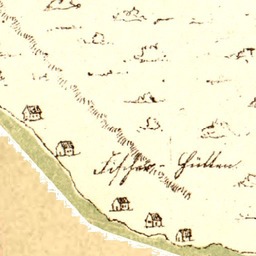 Fischer-Hütten.